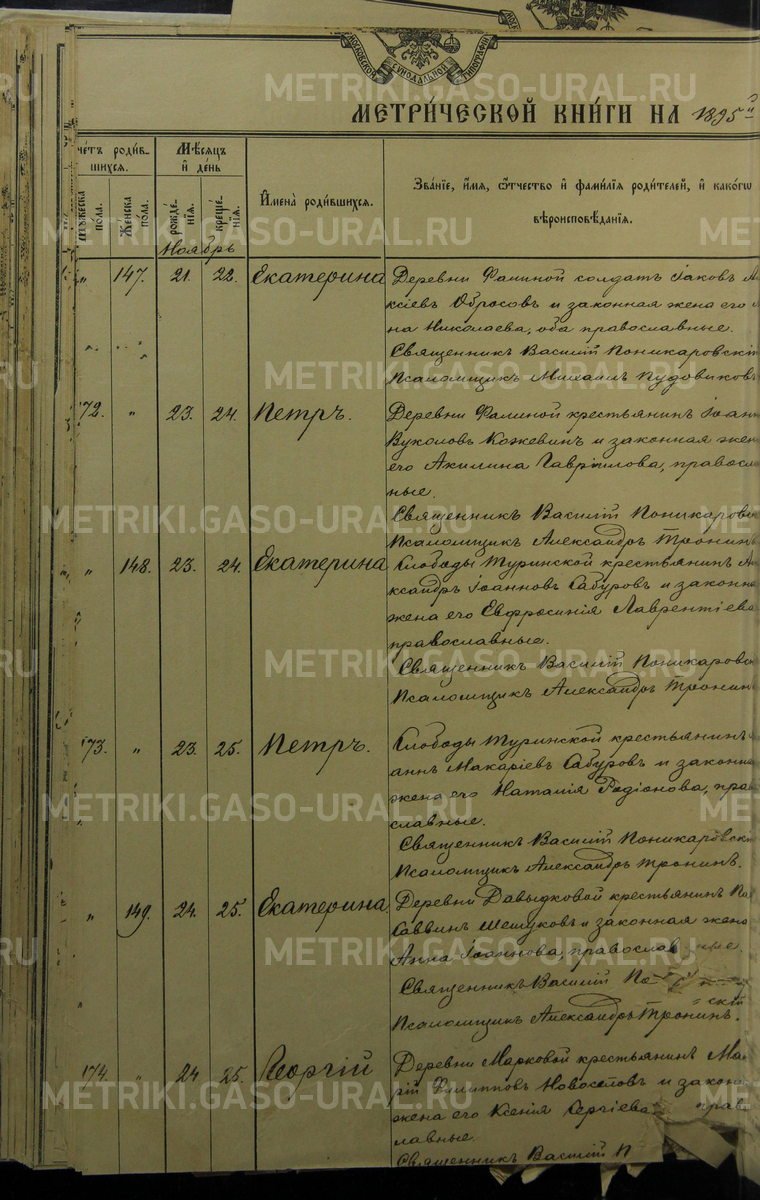 МОСКОВСКОЙ СѴНОДАЛЬНОЙ ТИПОГРАФІИ
МЕТРИ́ЧЕСКОЙ КНИ́ГИ НА 1895й
чéтъ роди́в-
шихся.
Мѣ́сяцъ
и́ де́нь
Мужеска по́ла.
Же́нска по́ла.
рожде́нїя.
креще́нїя.
И҆мена̀ роди́вшихся.
Зва́нїе, и҆́мя, ѻ҆́тчество и҆ фами́лїя роди́телей, и҆ какѡ́гѡ
вѣроисповѣ́данїя.
Ноябрь
" 147. 21. 22. Екатерина
Деревни Фалиной солдатъ Іаковъ
ксіевъ Обросовъ и законная жена его
на Николаева, оба православные.
Священникъ Василій Поникаровскій
Псаломщикъ Михаилъ Пудовиковъ
72. " 23. 24. Петръ.
Деревни Фалиной крестьянинъ Іоан
Вуколовъ Кожевинъ и законная жен
его Акилина Гавріилова, правосла
ные.
Священникъ Василій Поникаровск
Псаломщикъ Александръ Тронинъ
" 148. 23. 24. Екатерина
Слободы Туринской крестьянинъ Ал
ксандръ Іоанновъ Сабуровъ и законна
жена его Евфросинія Лаврентіева
православные.
Священникъ Василій Поникаровск
Псаломщикъ Александръ Тронин
173. " 23. 25. Петръ.
Слободы Туринской крестьянинъ
аннъ Макаріевъ Сабуровъ и законна
жена его Наталія Родіонова, пра
славные.
Священникъ Василій Поникаровскі
Псаломщикъ Александръ Тронинъ.
" 149. 24. 25. Екатерина.
Деревни Давыдковой крестьянинъ
Саввинъ Шешуковъ и законная жена
Анна Іоаннова, православные.
Священникъ Василій По
скій
Псаломщикъ Александръ Тронинъ.
174. " 24 25. Георгій
Деревни Марковой крестьянинъ Ма-
рій Филипповъ Новоселовъ и закон
жена его Ксенія Сергіева прав
лавные.
Священникъ Василій П
METRIKI.GASO-URAL.RU